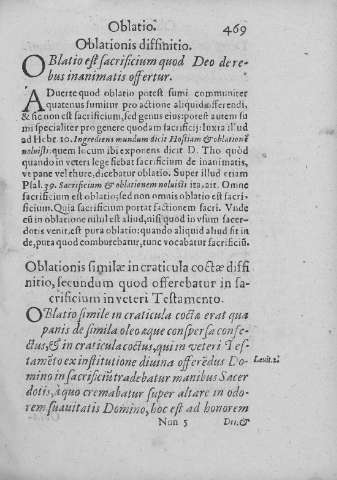 Oblatio. 469
Oblationis diffinitio.
OBlatio est sacrificium quod Deo de re-
bus inanimatis offertur.
ADuerte quod oblatio potest sumi communiter
quatenus sumitur pro actione aliquid offerendi,
& sic non est sacrificium, sed genus eius: potest autem su
mi specialiter pro genere quodam sacrificij: Iuxta illud
ad Hebr. 10. Ingrediens mundum dicit Hostiam & oblationē
noluisti: quem locum ibi exponens dicit D. Tho quòd
quando in veteri lege fiebat sacrificium de inanimatis,
vt pane vel thure, dicebatur oblatio. Super illud etiam
Psal. 39. Sacrificium & oblationem noluisti ita, ait. Omne
sacrificium est oblatio; sed non omnis oblatio est sacri-
ficium. Quia sacrificium portat factionem sacri. Vnde
cū in oblatione nihil est aliud, nisi quod in vsum sacer-
dotis venit, est pura oblatio: quando aliquid aliud fit in
de, puta quod comburebatur, tunc vocabatur sacrificiū.
Oblationis similæ in craticula coctæ diffi
nitio, secundum quod offerebatur in sa-
crificium in veteri Testamento.
OBlatio simile in craticula coctæ erat qua
panis de simila oleoq́ue conspersa confe-
ctus, & in craticula coctus, qui in veteri Tes-
tamēto ex institutione diuina offerēdus Do-
mino in sacrificiū tradebatur manibus Sacer
dotis, à quo cremabatur super altare in odo-
rem suauitatis Domino, hoc est ad honorem
Leuit. 2.
Nnn 5 Dei, &